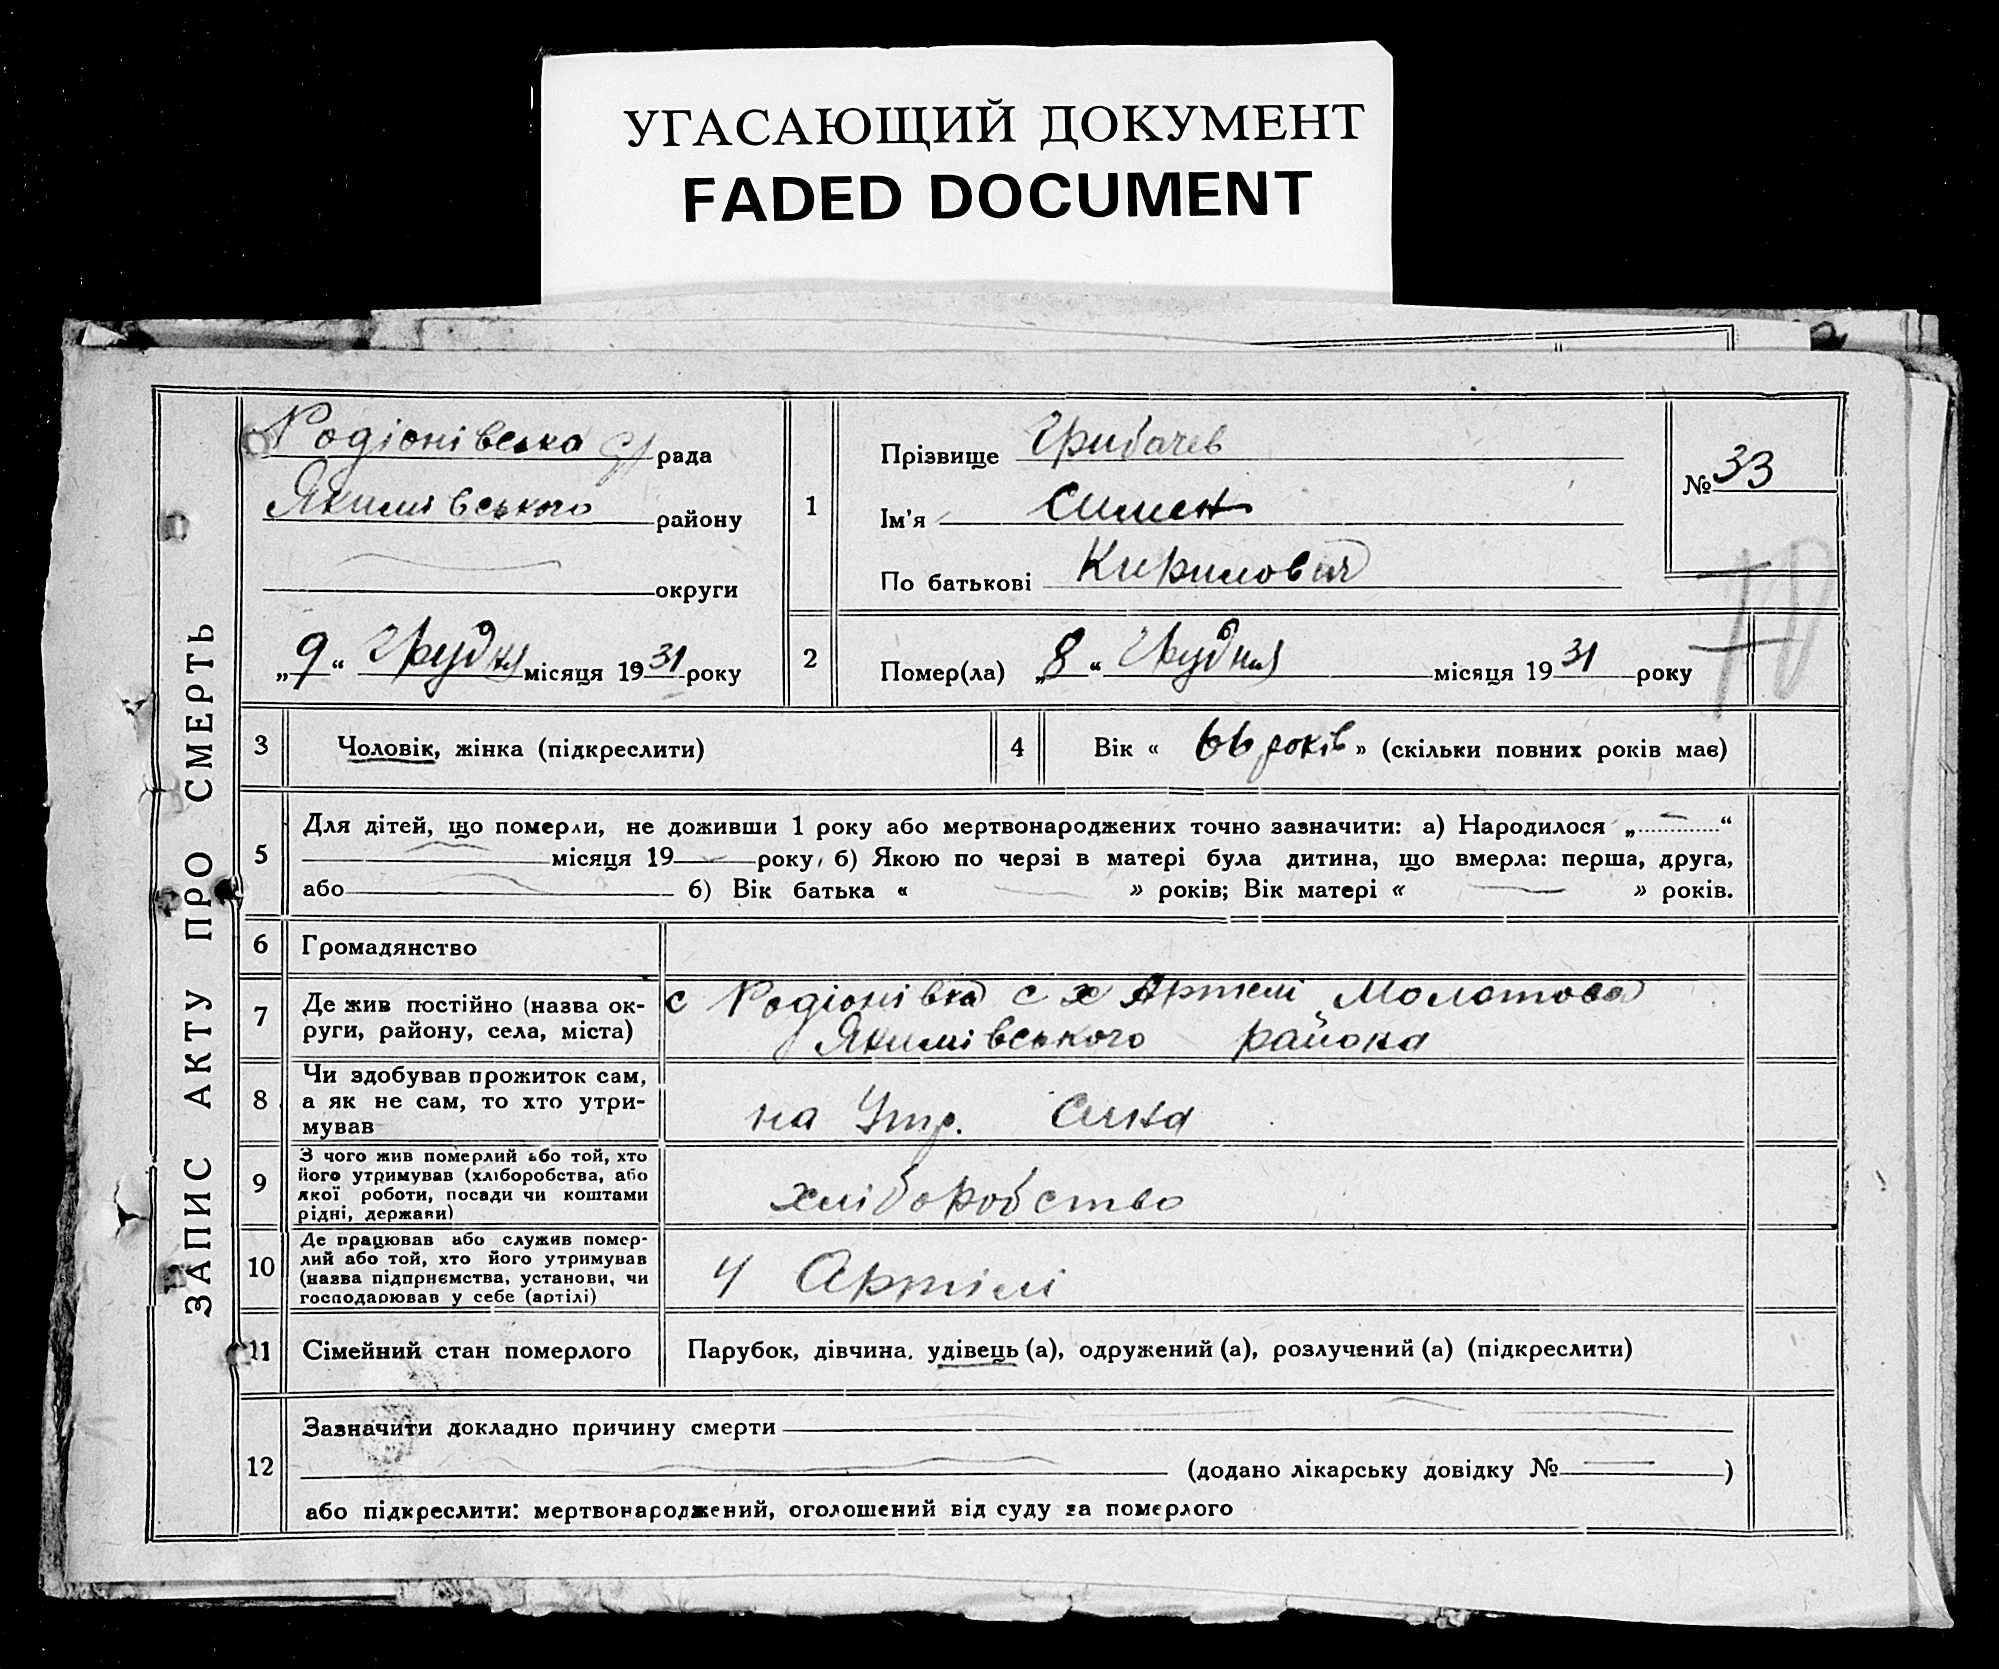 УГАСАЮЩИЙ ДОКУМЕНТ
FADED DOCUMENT
ЗАПИС АКТУ ПРО СМЕРТЬ
Родіонівська с/рада
Якимівського району
округи
„9“ Грудня місяця 1931 року
1
Прізвище Грибачев
Ім'я Симен
По батькові Кирилович
№ 33
2
Помер(ла) „8“ Грудня місяця 1931 року
3 Чоловік, жінка (підкреслити)
4 Вік « 66 років » (скільки повних років має)
5
Для дітей, що померли, не доживши 1 року або мертвонароджених точно зазначити: а) Народилося „ “
місяця 19 року, б) Якою по черзі в матері була дитина, що вмерла: перша, друга,
або б) Вік батька « » років; Вік матері « » років.
6 Громадянство
7
Де жив постійно (назва ок-
руги, району, села, міста)
с Родіонівка с х Артелі Молотова
Якимівського района
8
Чи здобував прожиток сам,
а як не сам, то хто утри-
мував
на Утр. сина
9
З чого жив померлий або той, хто
його утримував (хліборобства, або
якої роботи, посади чи коштами
рідні, держави)
хліборобство
10
Де працював або служив помер-
лий або той, хто його утримував
(назва підприємства, установи, чи
господарював у себе (артілі)
У Артілі
11 Сімейний стан померлого
Парубок, дівчина, удівець (а), одружений (а), розлучений (а) (підкреслити)
12
Зазначити докладно причину смерти
(додано лікарську довідку № )
або підкреслити: мертвонароджений, оголошений від суду за померлого